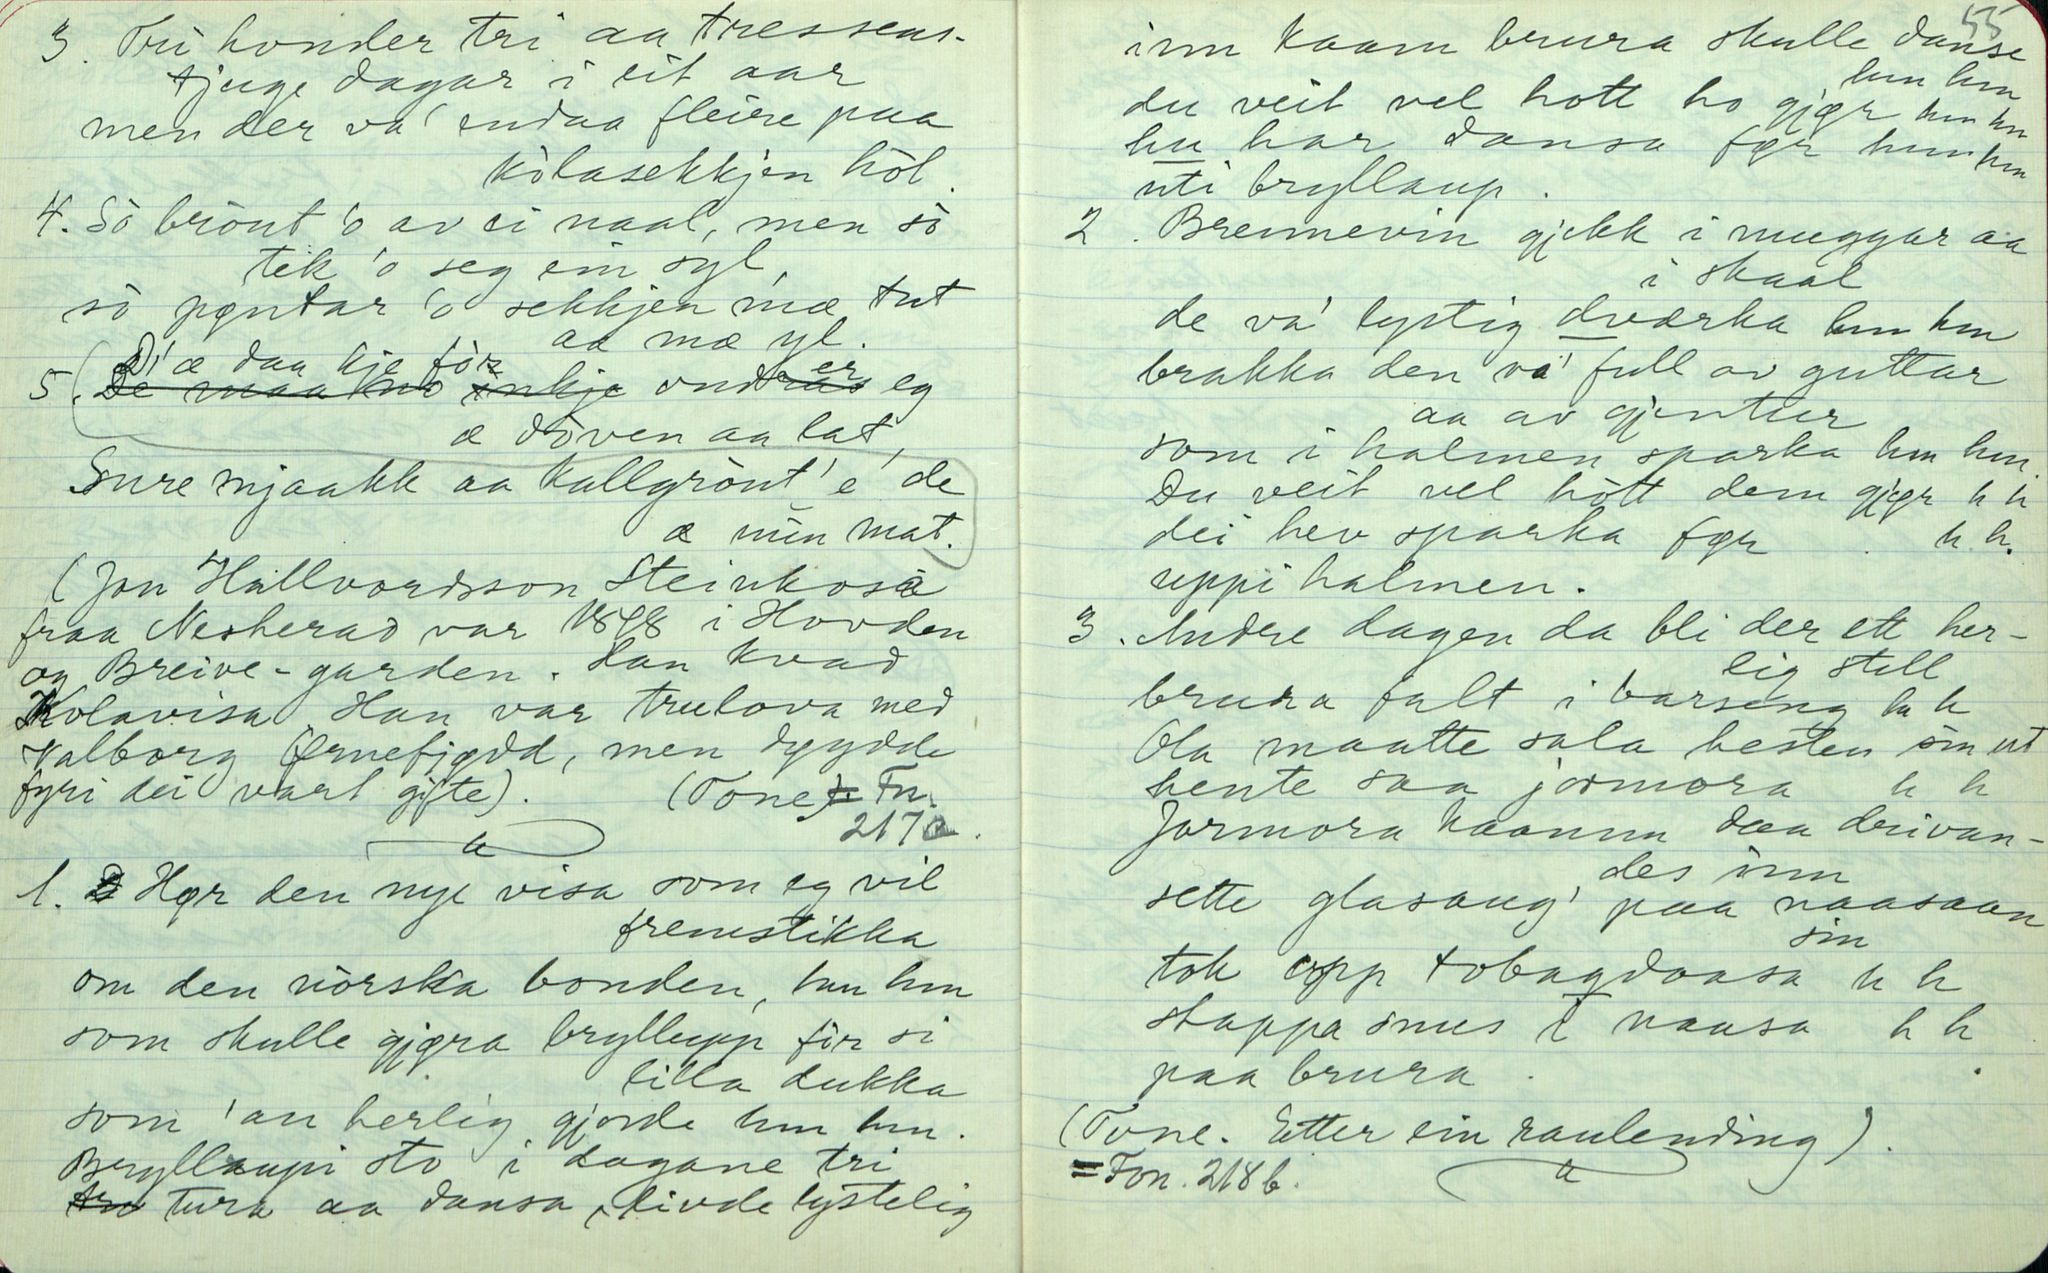 3. Tri honder tri aa tressens-
tjuge dagar i eit aar
men der va' endaa fleire paa
kòlasekkjen hòl.
4. Sò brònt 'o av ei naal, men sò
tek 'o seg ein syl,
sò pøntar 'o sekkjen mæ tut
aa mæ yl.
D'æ daa kje fòr
5. De maa kno inkje ondras er eg
æ dòven aa lat,
Sure mjaakk aa kallgrònt' e' de
æ min mat.
(Jon Hallvordsson Steinkosa
fraa Nesherad var 1898 i Hovden
og Breive-garden. Han kvad
Kolavisa. Han var trulova med
Valborg Ørnefjødd, men døydde
fyri dei vart gifte). (Tone) = Fn.
217a.
a
1. Hør den nye visa som eg vil
fremstikka
om den norska bonden, hm hm
som skulle gjøra bryllupp fòr si
lilla dukka
som 'an herlig gjorde hm hm.
Bryllaupi sto i dagane tri
tru tura aa dansa, livde lystelig
55
inn kaam brura skulle danse
hm hm
du veit vel hott ho gjør hm hm
hu har dansa før hm hm
uti bryllaup.
2. Brennevin gjekk i muggar aa
i skaal
de va' lystig dværka hm hm
brakka den va' full av guttar
aa av gjentur
som i halmen sparka hm hm.
Du veit vel hòtt dem gjør h h
dei hev sparka før h h.
uppi halmen.
3. Andre dagen da bli der ett her-
lig stell
brura falt i barseng h h
Ola maatte sala hesten sin ut
hente saa jormora h h
Jormora kaamm daa drivan-
des inn
sette glasaug' paa naasaan
sin
tok opp tobagdaasa h h
stappa snus i naasa h h
paa brura.
(Tone. Etter ein raulending).
= Fon. 218 b.
a